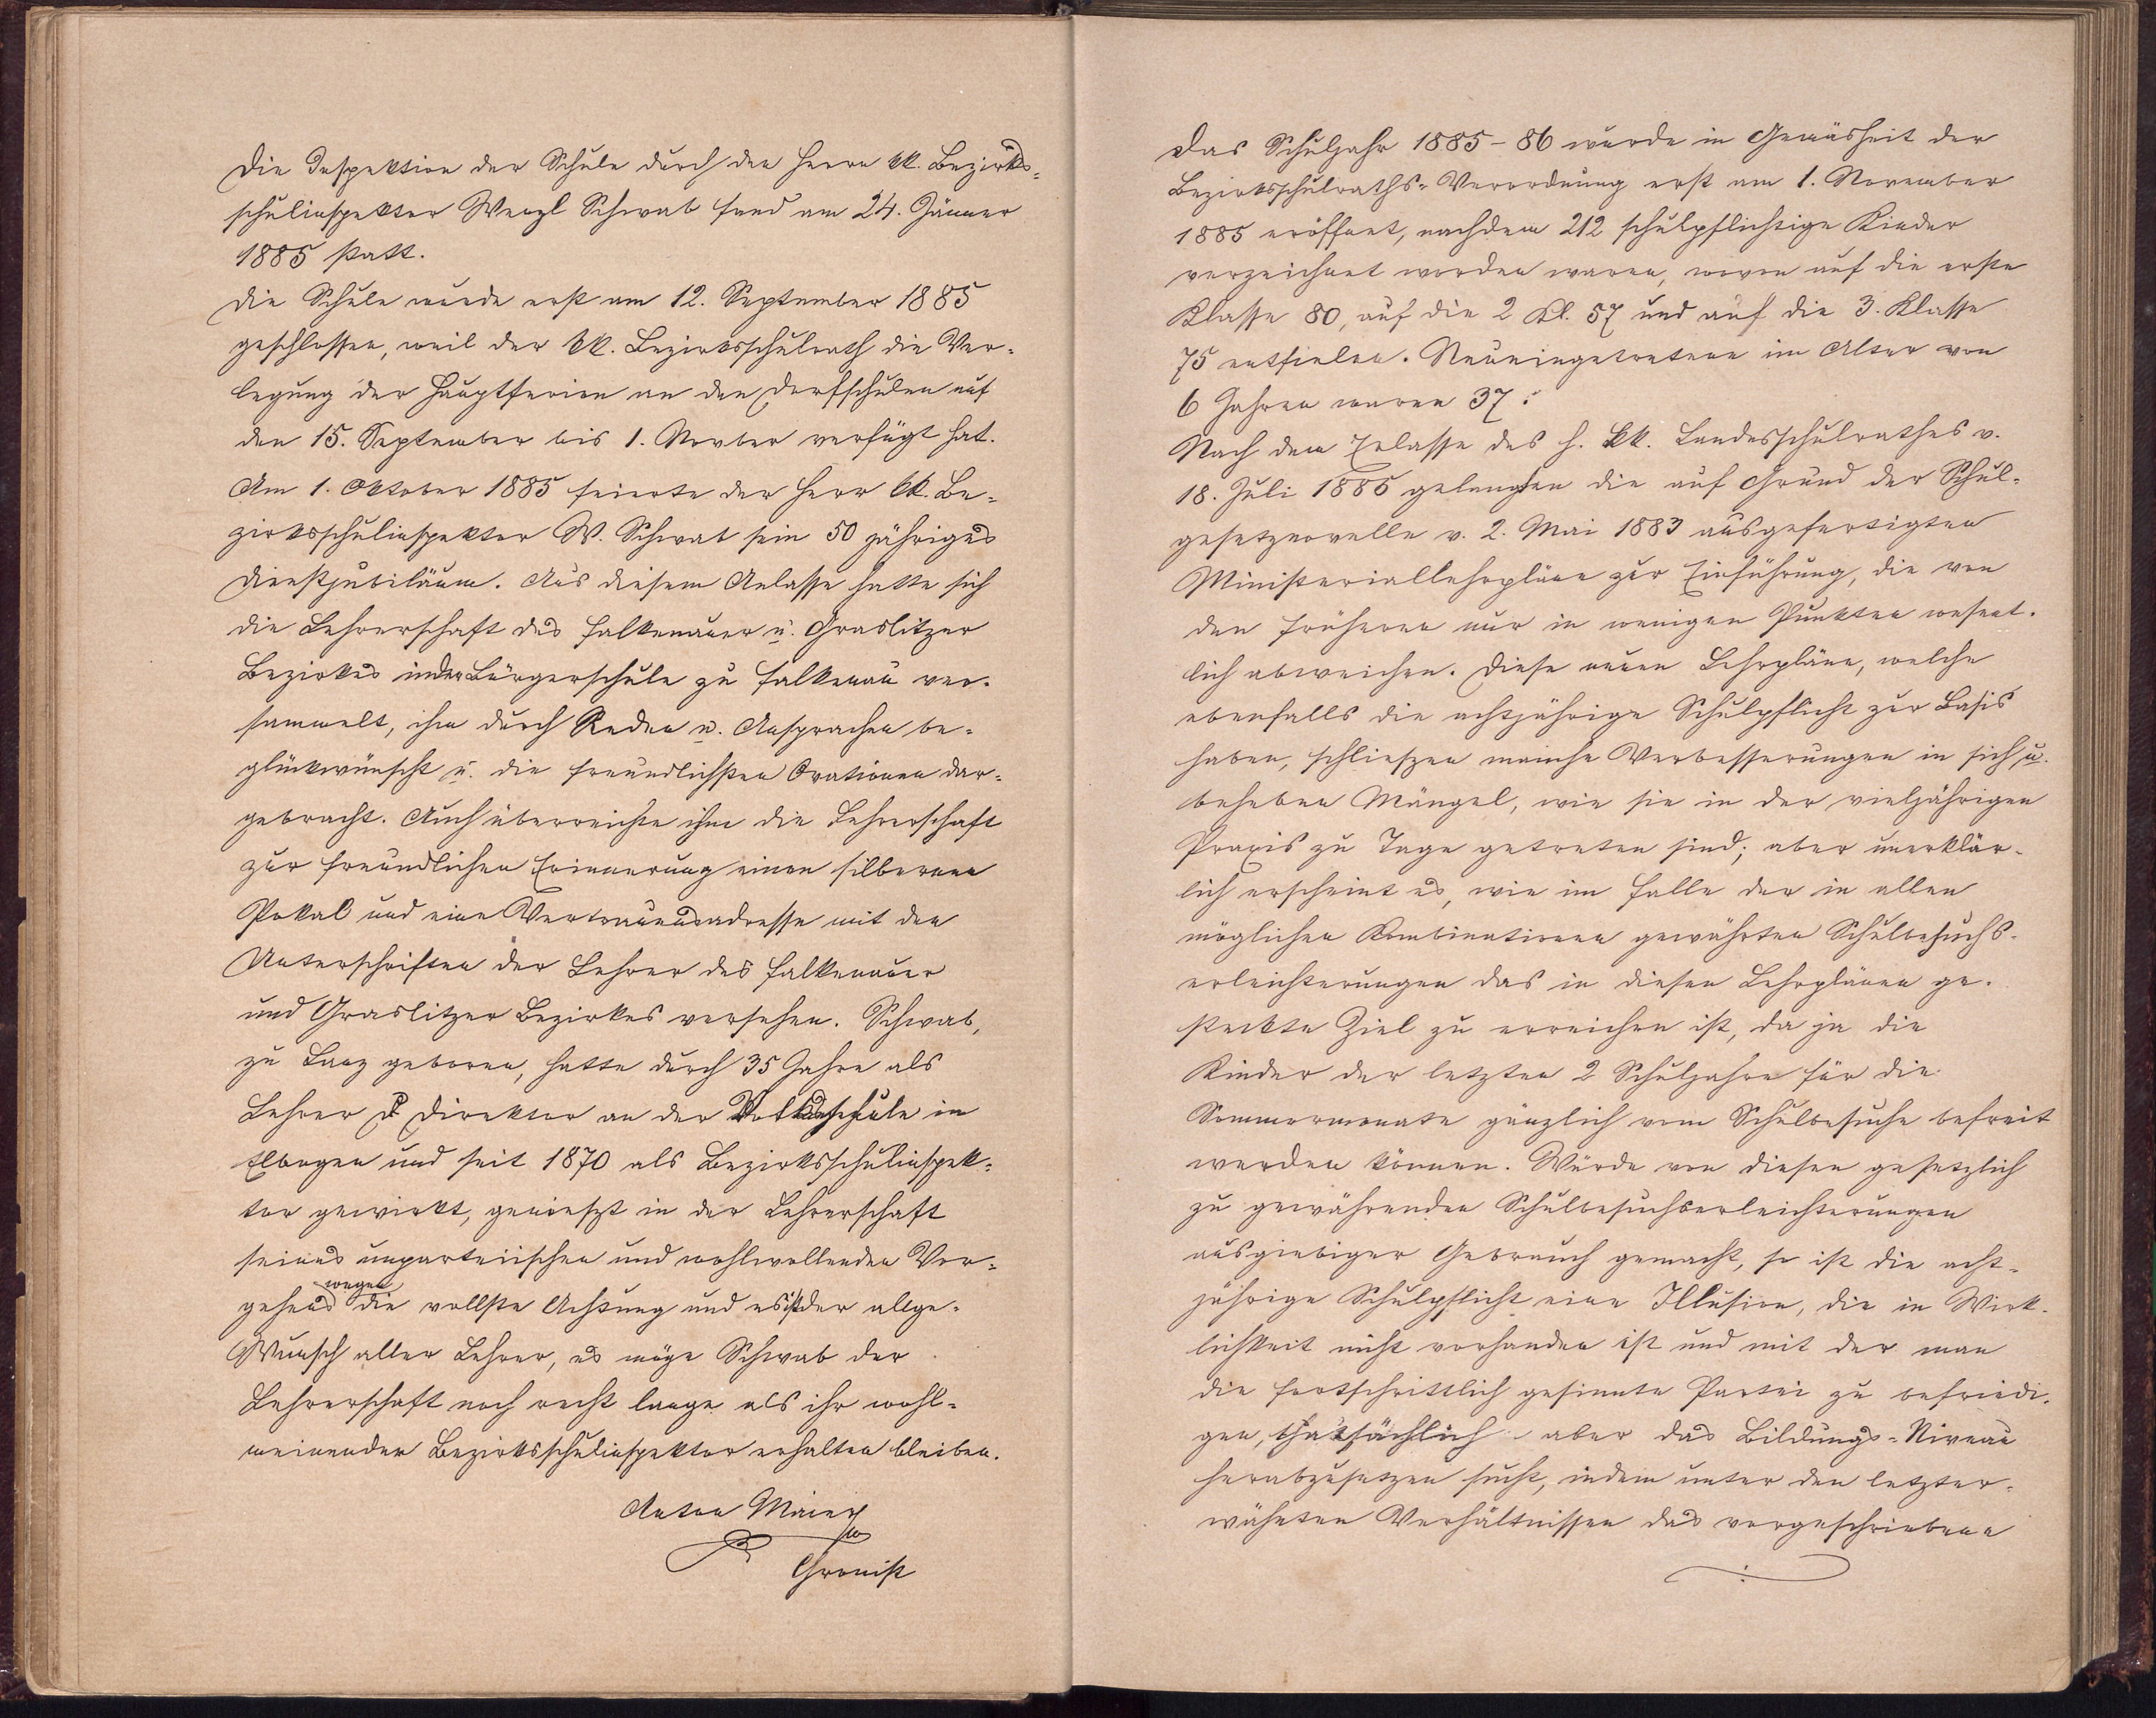 Die Inspektion der Schule durch den Herrn kk. Bezirks-
schulinspektor Wenzl Schwab fand am 24. Jänner
1885 statt.
Die Schule wurde erst am 12. September 1885
geschlossen, weil der kk. Bezirksschulrath die Ver-
legung der Hauptferien an den Dorfschulen auf
den 15. September bis 1. Novber verfügt hat.
Am 1. Oktober 1885 feierte der Herr kk. Be-
zirksschulinspektor W. Schwab sein 50 jähriges
Dienstjubiläum. Aus diesem Anlasse hatte sich
die Lehrerschaft des Falkenauer u. Graslitzer
Bezirkes in der Bürgerschule zu Falkenau ver-
sammelt, ihn durch Reden u. Ansprachen be-
glückwünscht u. die freundlichsten Ovationen dar-
gebracht. Auch überreichte ihm die Lehrerschaft
zur freundlichen Erinnerung einen silbernen
Pokal und eine Vertrauensadresse mit den
Unterschriften der Lehrer des Falkenauer
und Graslitzer Bezirkes versehen. Schwab,
zu Lanz geboren, hatte durch 35 Jahre als
Lehrer Direktor an der Volksschule in
Elbogen und seit 1870 als Bezirksschulinspek-
tor gewirkt, genieszt in der Lehrerschaft
seines unparteiischen und wohlwollenden Vor-
gehens wegen die vollste Achtung und es ist der allge-
Wunsch aller Lehrer, es möge Schwab der
Lehrerschaft noch recht lange als ihr wohl-
meinender Bezirksschulinspektor erhalten bleiben.
Anton Maier
Chronist
Das Schuljahr 1885-86 wurde in Gemäsheit der
Bezirksschulraths-Verordnung erst am 1. November
1885 eröffnet, nachdem 212 schulpflichtige Kinder
verzeichnet worden waren, wovon auf die erste
Klasse 80, auf die 2 Kl. 57 und auf die 3. Klasse
75 entfielen. Neueingetretene im Alter von
6 Jahren waren 37.
Nach dem Erlasse des h. kk. Landesschulrathes v.
18. Juli 1885 gelangten die auf Grund der Schul-
gesetznovelle v. 2. Mai 1883 ausgefertigten
Ministeriallehrpläne zur Einführung, die von
den früheren nur in wenigen Punkten wesent-
lich abweichen. Diese neuen Lehrpläne, welche
ebenfalls die achtjährige Schulpflicht zur Basis
haben, schlieszen manche Verbesserungen in sich u.
beheben Mängel, wie sie in der vieljährigen
Praxis zu Tage getreten sind; aber unerklär-
lich erscheint es, wie im Falle der in allen
möglichen Kombinationen gewährten Schulbesuchs-
erleichterungen das in diesen Lehrplänen ge-
steckte Ziel zu erreichen ist, da ja die
Kinder der letzten 2 Schuljahre für die
Sommermonate gänzlich vom Schulbesuche befreit
werden können. Würde von diesen gesetzlich
zu gewährenden Schulbesuchserleichterungen
ausgiebiger Gebrauch gemacht, so ist die acht-
jährige Schulpflicht eine Illusion, die in Wirk-
lichkeit nicht vorhanden ist und mit der man
die fortschrittlich gesinnte Partei zu befriedi-
gen, thatsächlich aber das Bildungs-Niveau
herabzusetzen sucht, indem unter den letzter-
wähnten Verhältnissen das vorgeschriebene